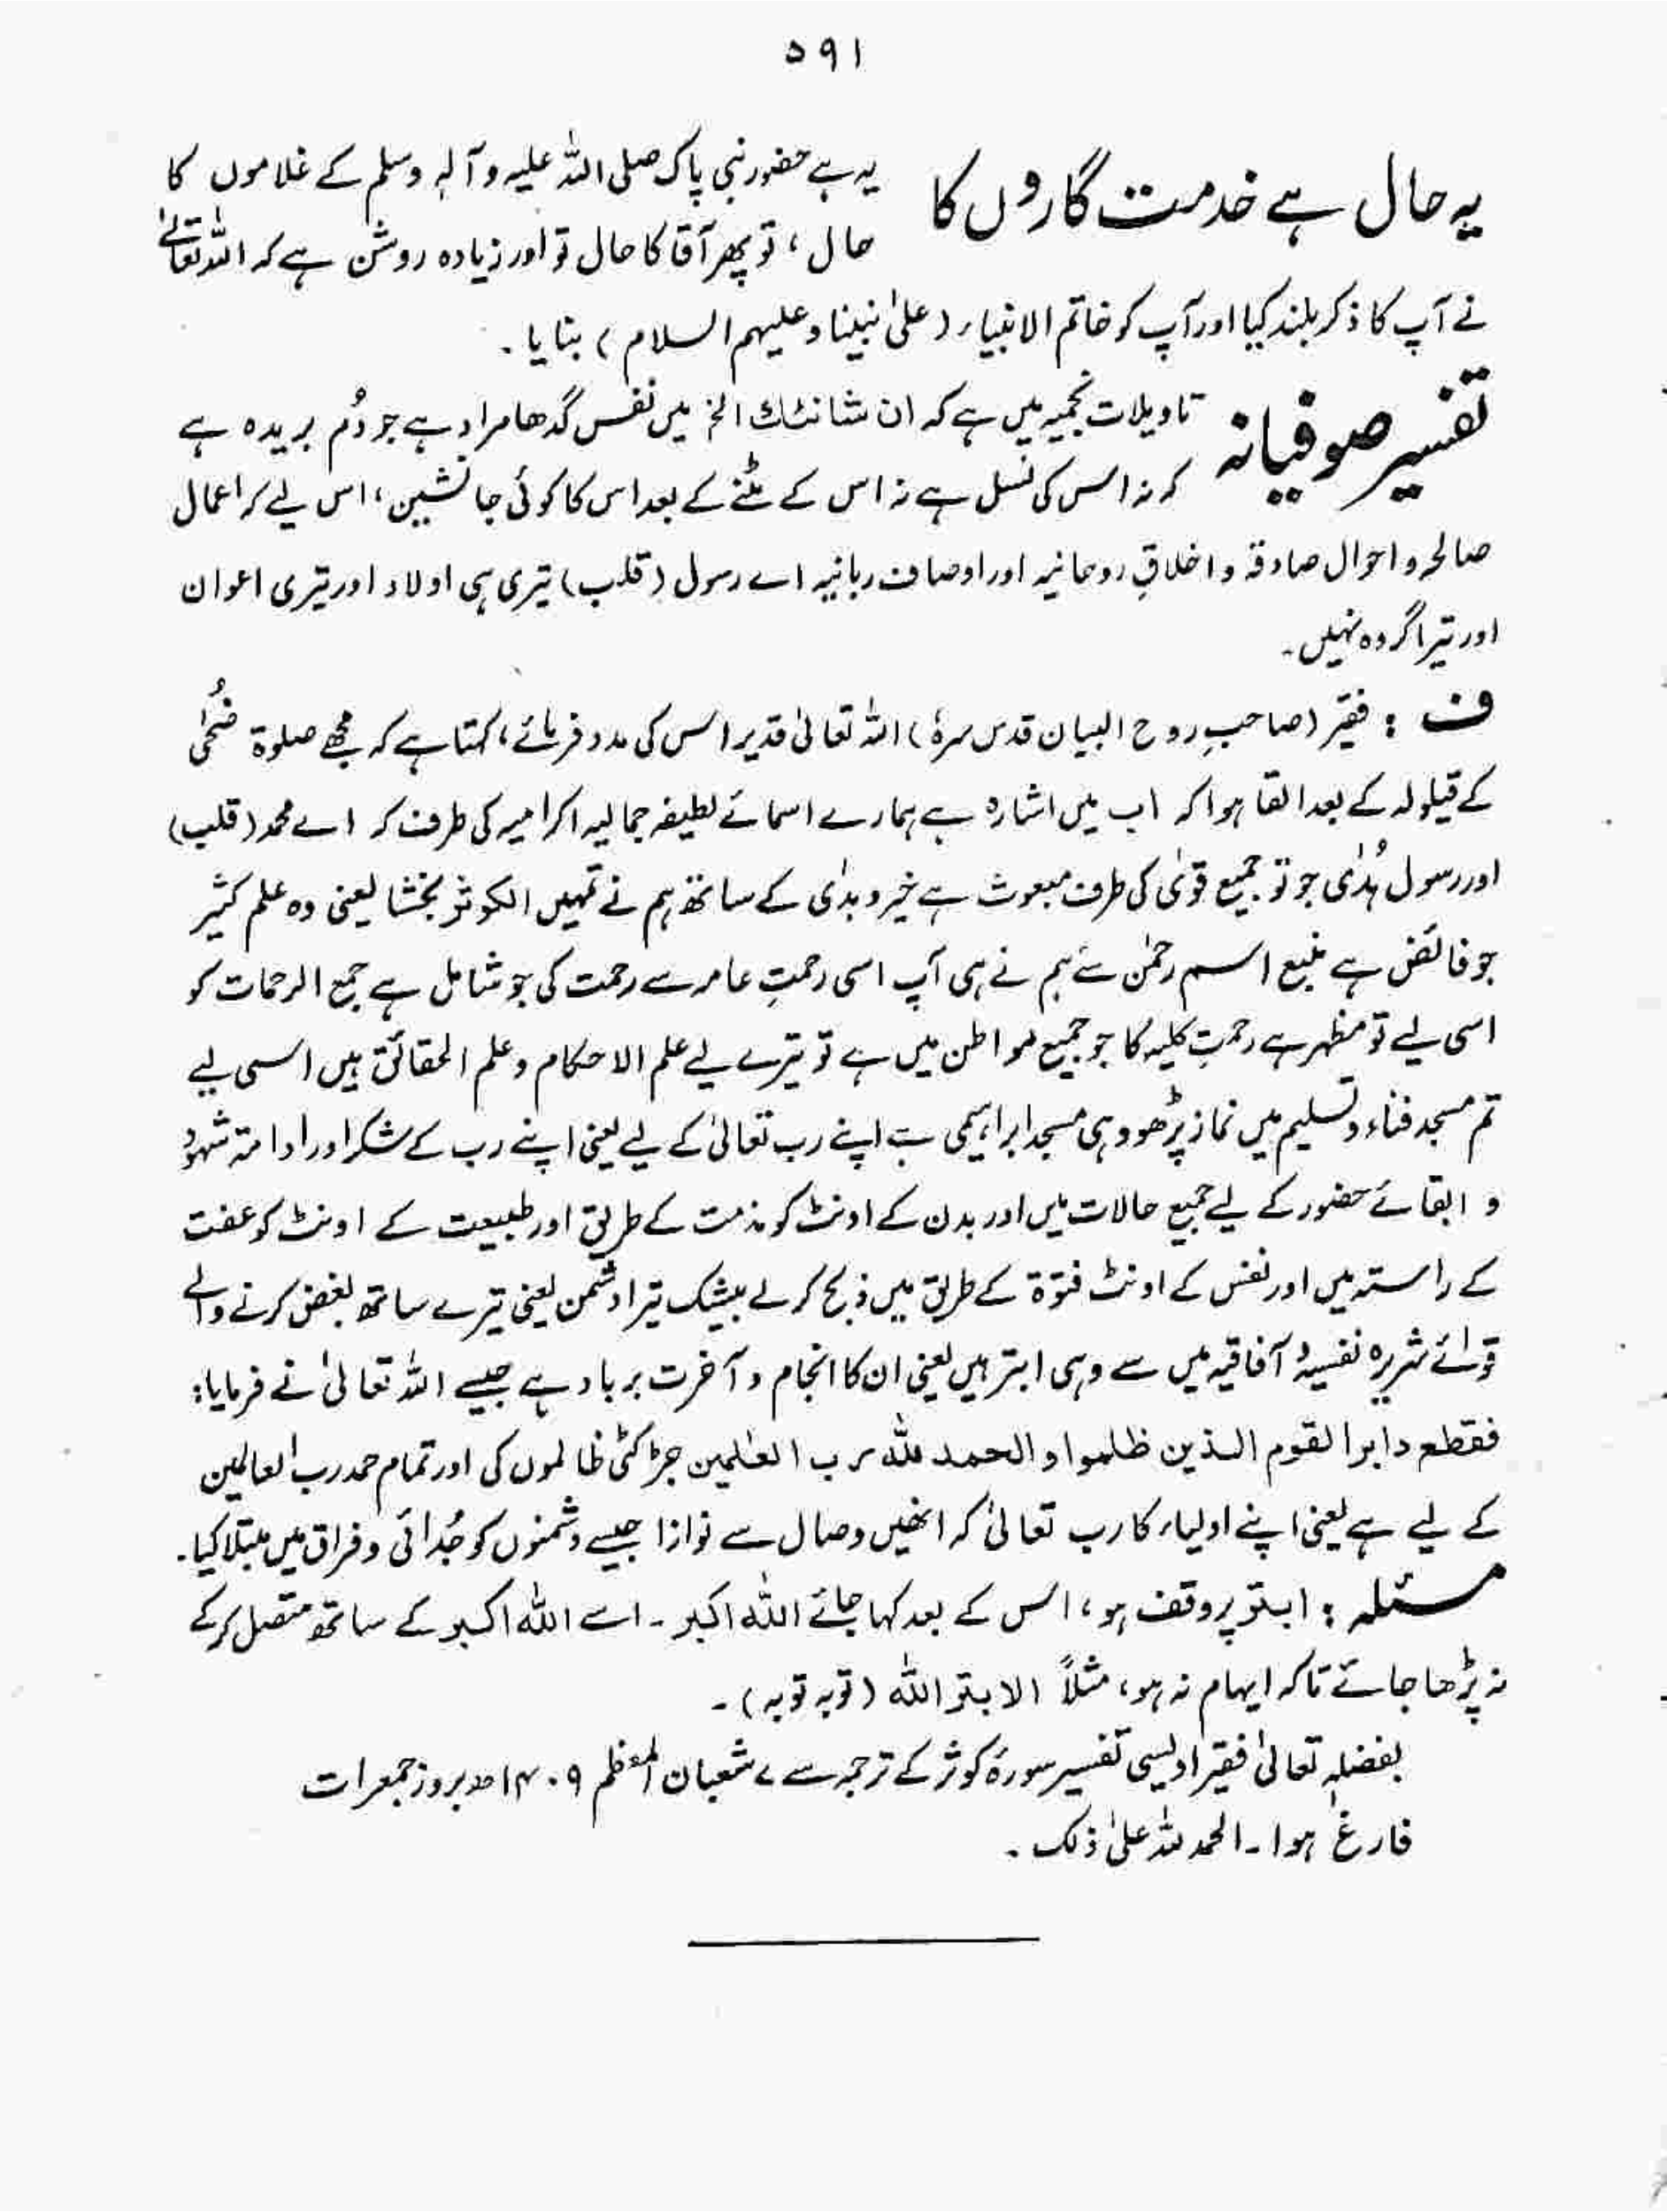 ۵۹۱
یہ حال ہے خدمت گاروں کا
یہ ہے حضور نبی پاک صلی اللہ علیہ وآلہٖ وسلم کے غلاموں کا
حال، تو پھر آقا کا حال تو اور زیادہ روشن ہے کہ اللہ تعالےٰ
نے آپ کا ذکر بلند کیا اور آپ کو خاتم الانبیاء (علیٰ نبینا وعلیہم السلام) بنایا۔
تفسیر صوفیانہ
تاویلات نجمیہ میں ہے کہ ان شانئك الخ میں نفس گدھا مراد ہے جو دُم بریدہ ہے
کہ نہ اس کی نسل ہے نہ اس کے مٹنے کے بعد اس کا کوئی جانشین، اس لیے کہ اعمال
صالحہ و احوال صادقہ و اخلاقِ روحانیہ اور اوصاف ربانیہ اے رسول (قلب) تیری ہی اولاد اور تیری اعوان
اور تیرا گروہ نہیں۔
ف : فقیر (صاحبِ روح البیان قدس سرہٗ) اللہ تعالیٰ قدیر اس کی مدد فرمائے، کہتا ہے کہ مجھے صلوۃ ضُحٰی
کے قیلولہ کے بعد القا ہوا کہ اب میں اشارہ ہے ہمارے اسمائے لطیفہ جمالیہ اکرامیہ کی طرف کہ اے محمد (قلب)
اور رسول ہُدٰی جو تو جمیع قوٰی کی طرف مبعوث ہے خیر و ہدٰی کے ساتھ ہم نے تمہیں الکوثر بخشا یعنی وہ علم کثیر
جو فائض ہے منبع اسم رحمٰن سے ہم نے ہی آپ اسی رحمتِ عامہ سے رحمت کی جو شامل ہے جمع الرحمات کو
اسی لیے تو مظہر ہے رحمتِ کلیہ کا جو جمیع مواطن میں ہے تو تیرے لیے علم الاحکام و علم الحقائق ہیں اسی لیے
تم مسجد فناء و تسلیم میں نماز پڑھو وہی مسجد ابراہیمی ہے اپنے رب تعالیٰ کے لیے یعنی اپنے رب کے شکر اور ادامۃ شہود
و ابقائے حضور کے لیے جمیع حالات میں اور بدن کے اونٹ کو مذمت کے طریق اور طبیعت کے اونٹ کو عفت
کے راستہ میں اور نفس کے اونٹ فتوۃ کے طریق میں ذبح کر لے بیشک تیرا دشمن یعنی تیرے ساتھ بغض کرنے والے
قوائے شریرہ نفسیہ و آفاقیہ میں سے وہی ابتر ہیں یعنی ان کا انجام و آخرت برباد ہے جیسے اللہ تعالیٰ نے فرمایا:
فقطع دابر القوم الذین ظلموا والحمد للہ رب العٰلمین جڑ کٹی ظالموں کی اور تمام حمد رب العالمین
کے لیے ہے یعنی اپنے اولیاء کا رب تعالیٰ کہ انھیں وصال سے نوازا جیسے دشمنوں کو جُدائی و فراق میں مبتلا کیا۔
مسئلہ : ابتر پر وقف ہو، اس کے بعد کہا جائے اللہ اکبر۔ اسے اللہ اکبر کے ساتھ متصل کرکے
نہ پڑھا جائے تاکہ ایہام نہ ہو، مثلاً الابتر اللہ (توبہ توبہ)۔
بفضلہٖ تعالیٰ فقیر اویسی تفسیر سورۂ کوثر کے ترجمہ سے ۷ شعبان المعظم ۱۴۰۹ھ بروز جمعرات
فارغ ہوا۔ الحمد للہ علیٰ ذٰلک۔